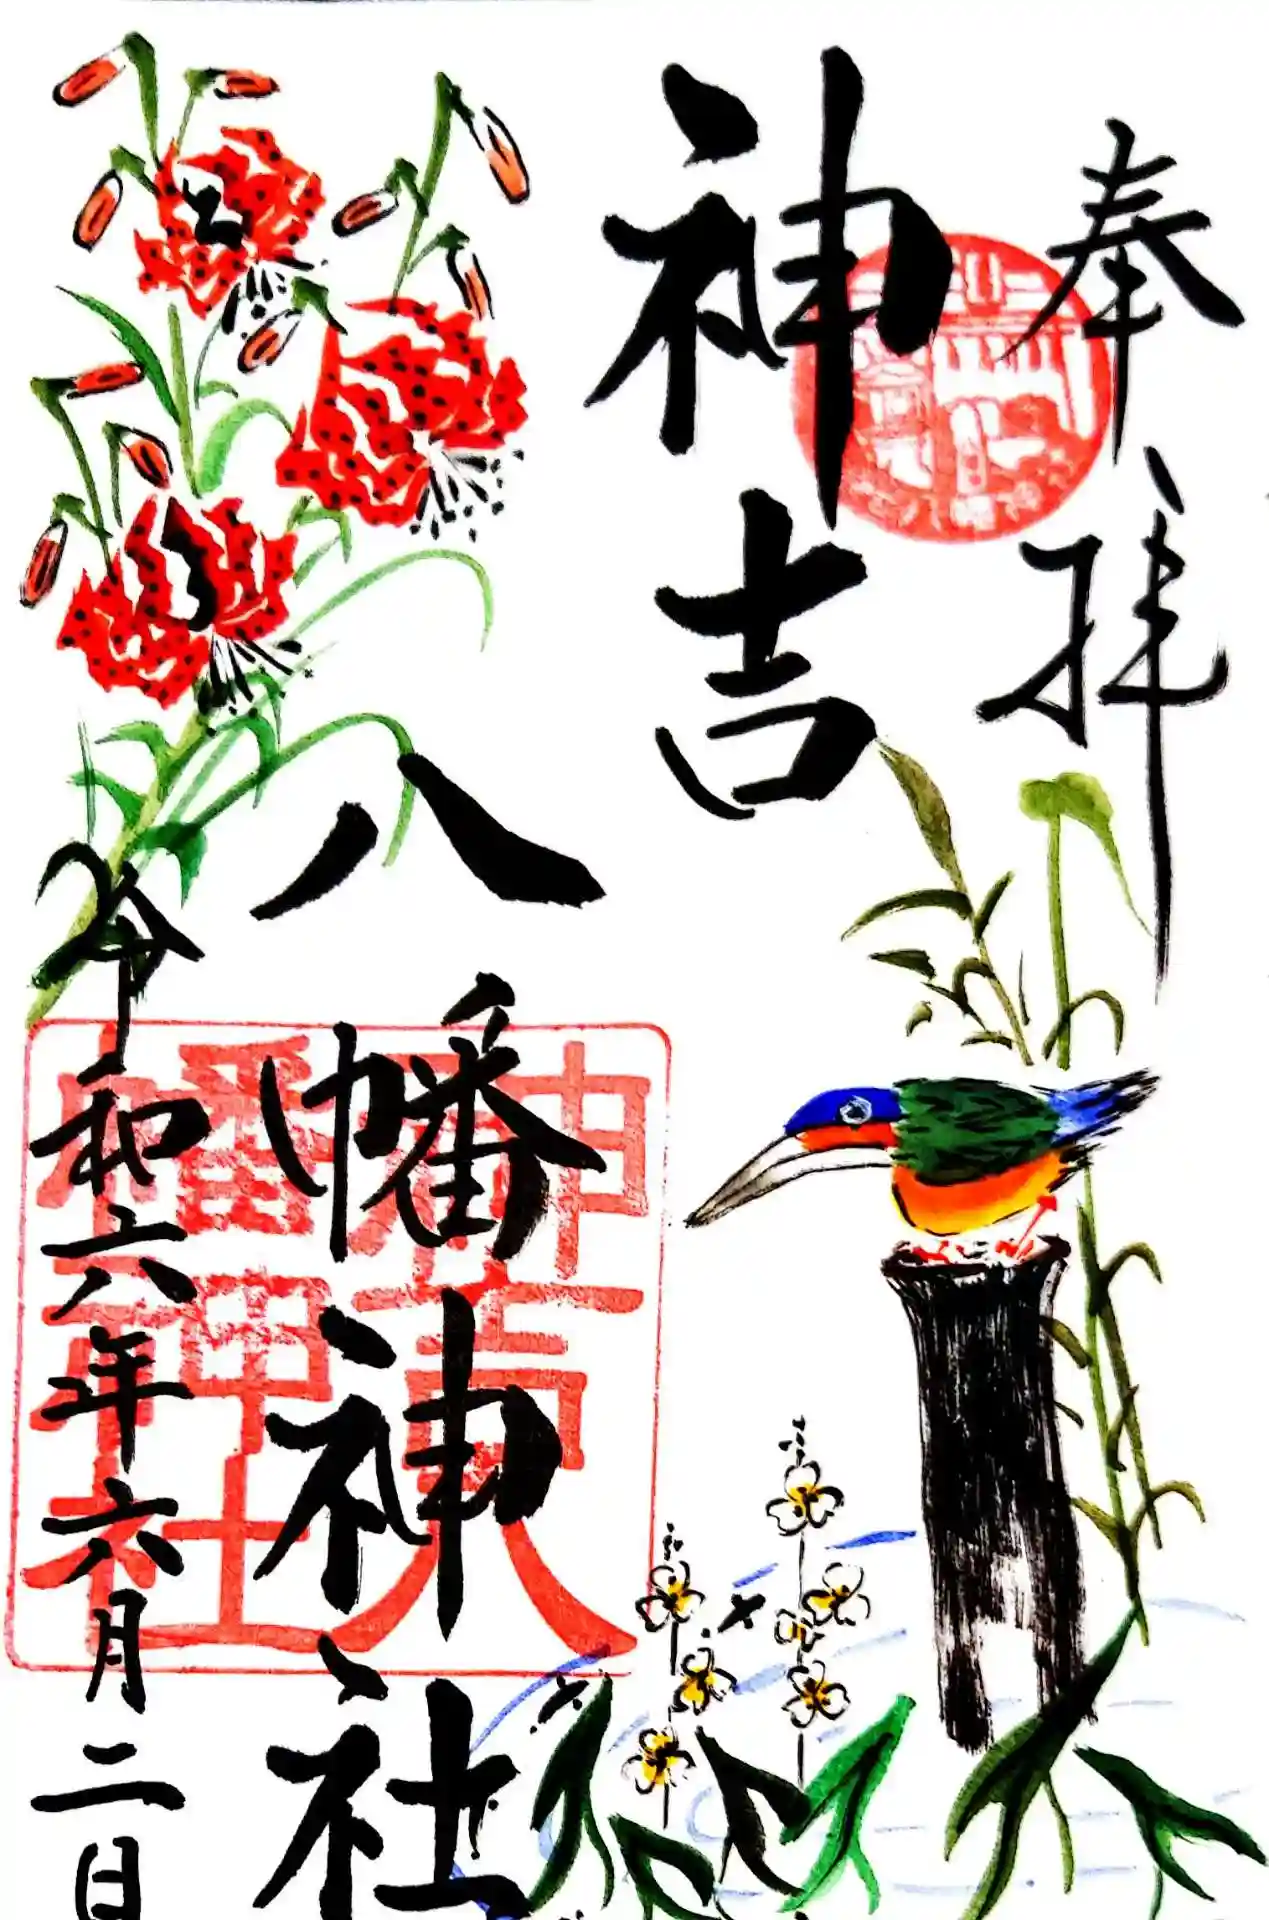 奉拝
神吉
八幡神社
令和六年六月二日
神吉八
幡神社